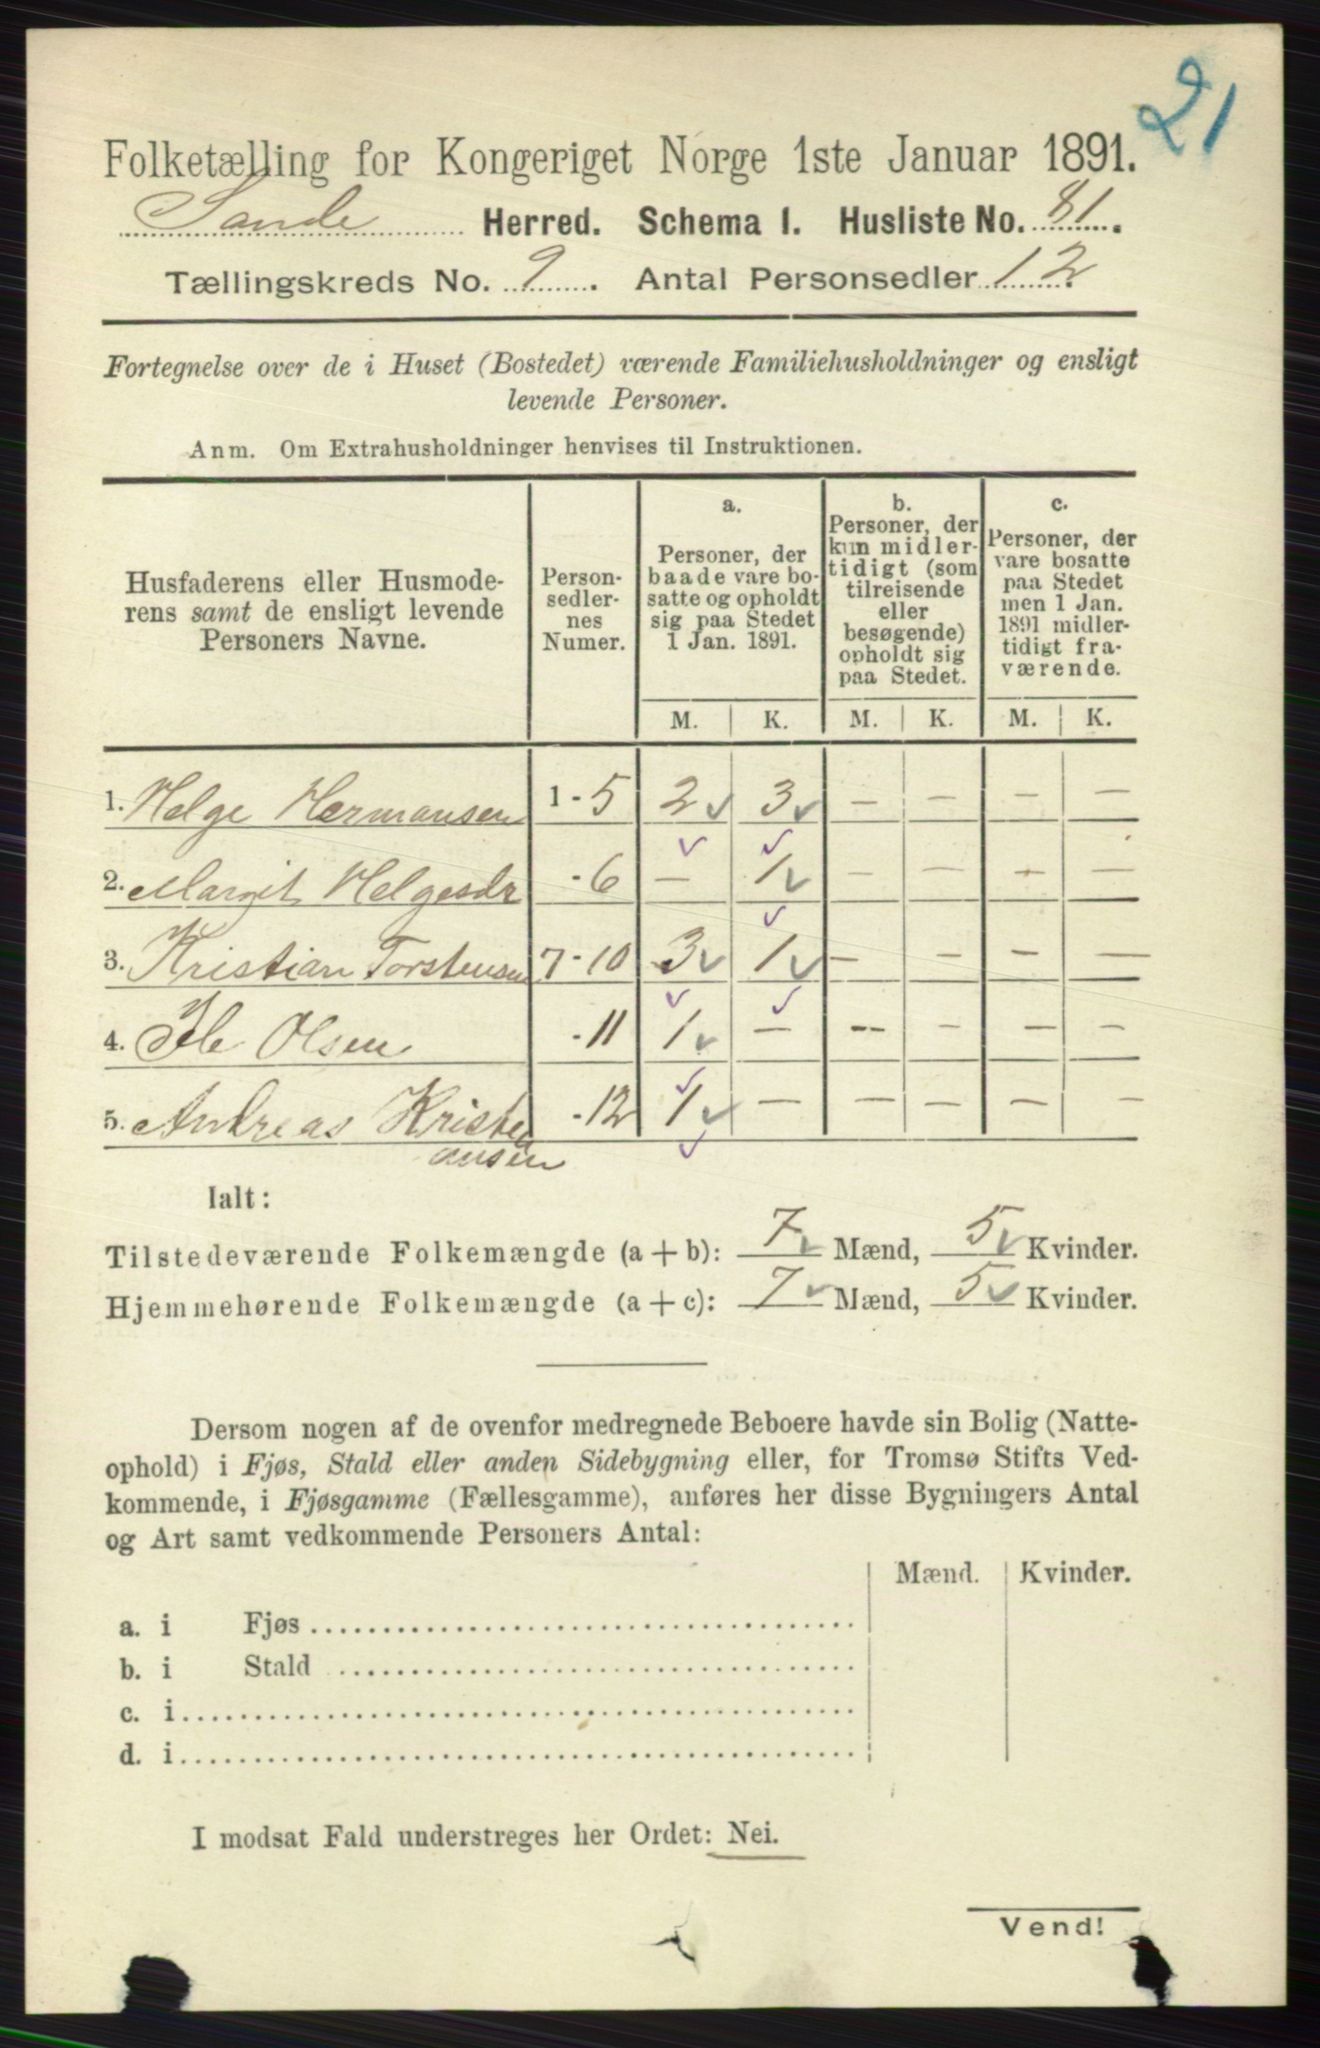 21
Folketælling for Kongeriget Norge 1ste Januar 1891.
Sande Herred. Schema I. Husliste No. 81.
Tællingskreds No. 9. Antal Personsedler 12.
Fortegnelse over de i Huset (Bostedet) værende Familiehusholdninger og ensligt
levende Personer.
Anm. Om Extrahusholdninger henvises til Instruktionen.
Husfaderens eller Husmode-
rens samt de ensligt levende
Personers Navne.
Person-
sedler-
nes
Numer.
a.
Personer, der
baade vare bo-
satte og opholdt
sig paa Stedet
1 Jan. 1891.
b.
Personer, der
kun midler-
tidigt (som
tilreisende
eller
besøgende)
opholdt sig
paa Stedet.
c.
Personer, der
vare bosatte
paa Stedet
men 1 Jan.
1891 midler-
tidigt fra-
værende.
M. K. M. K. M. K.
1. Helge Hermansen 1-5 2 3 — — — —
2. Margit Helgesdr -6 — 1 — — — —
3. Kristian Torstensen 7-10 3 1 — — — —
4. Ole Olsen -11 1 — — — — —
5. Andreas Kristi -12 1 — — — — —
ansen
Ialt:
Tilstedeværende Folkemængde (a + b): 7 Mænd, 5 Kvinder.
Hjemmehørende Folkemængde (a + c): 7 Mænd, 5 Kvinder.
Dersom nogen af de ovenfor medregnede Beboere havde sin Bolig (Natte-
ophold) i Fjøs, Stald eller anden Sidebygning eller, for Tromsø Stifts Ved-
kommende, i Fjøsgamme (Fællesgamme), anføres her disse Bygningers Antal
og Art samt vedkommende Personers Antal:
Mænd. Kvinder.
a. i Fjøs
b. i Stald
c. i
d. i
I modsat Fald understreges her Ordet: Nei.
Vend!